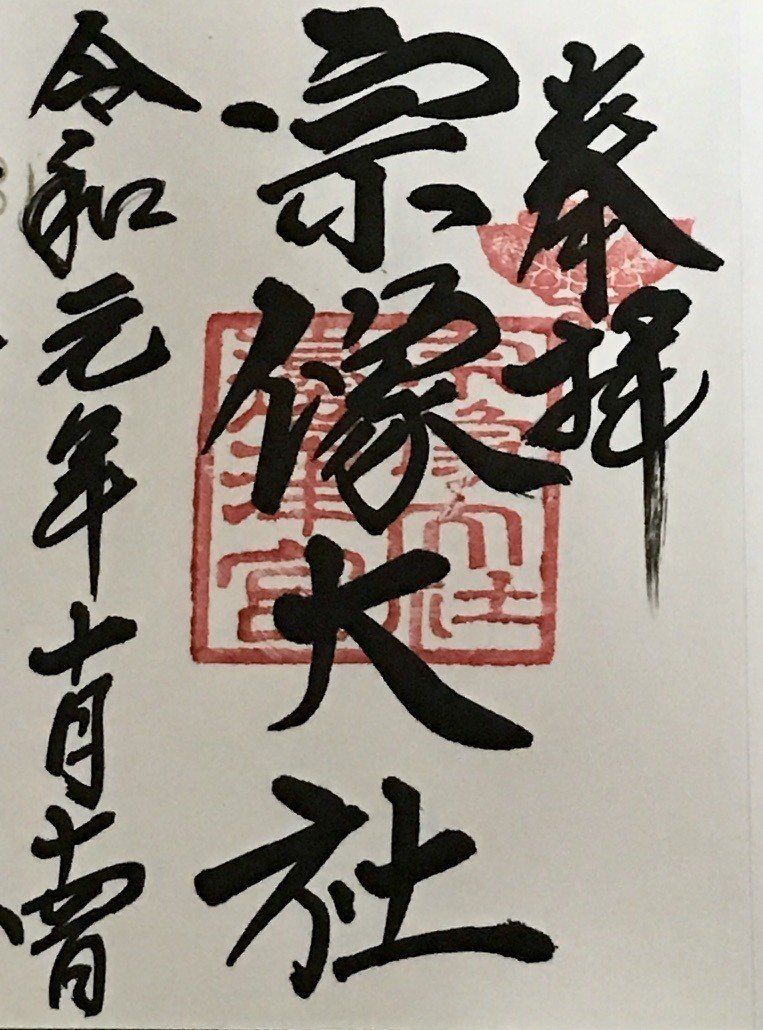 奉拝
宗像大社
令和元年十月十四日
宗像大社
邊津宮